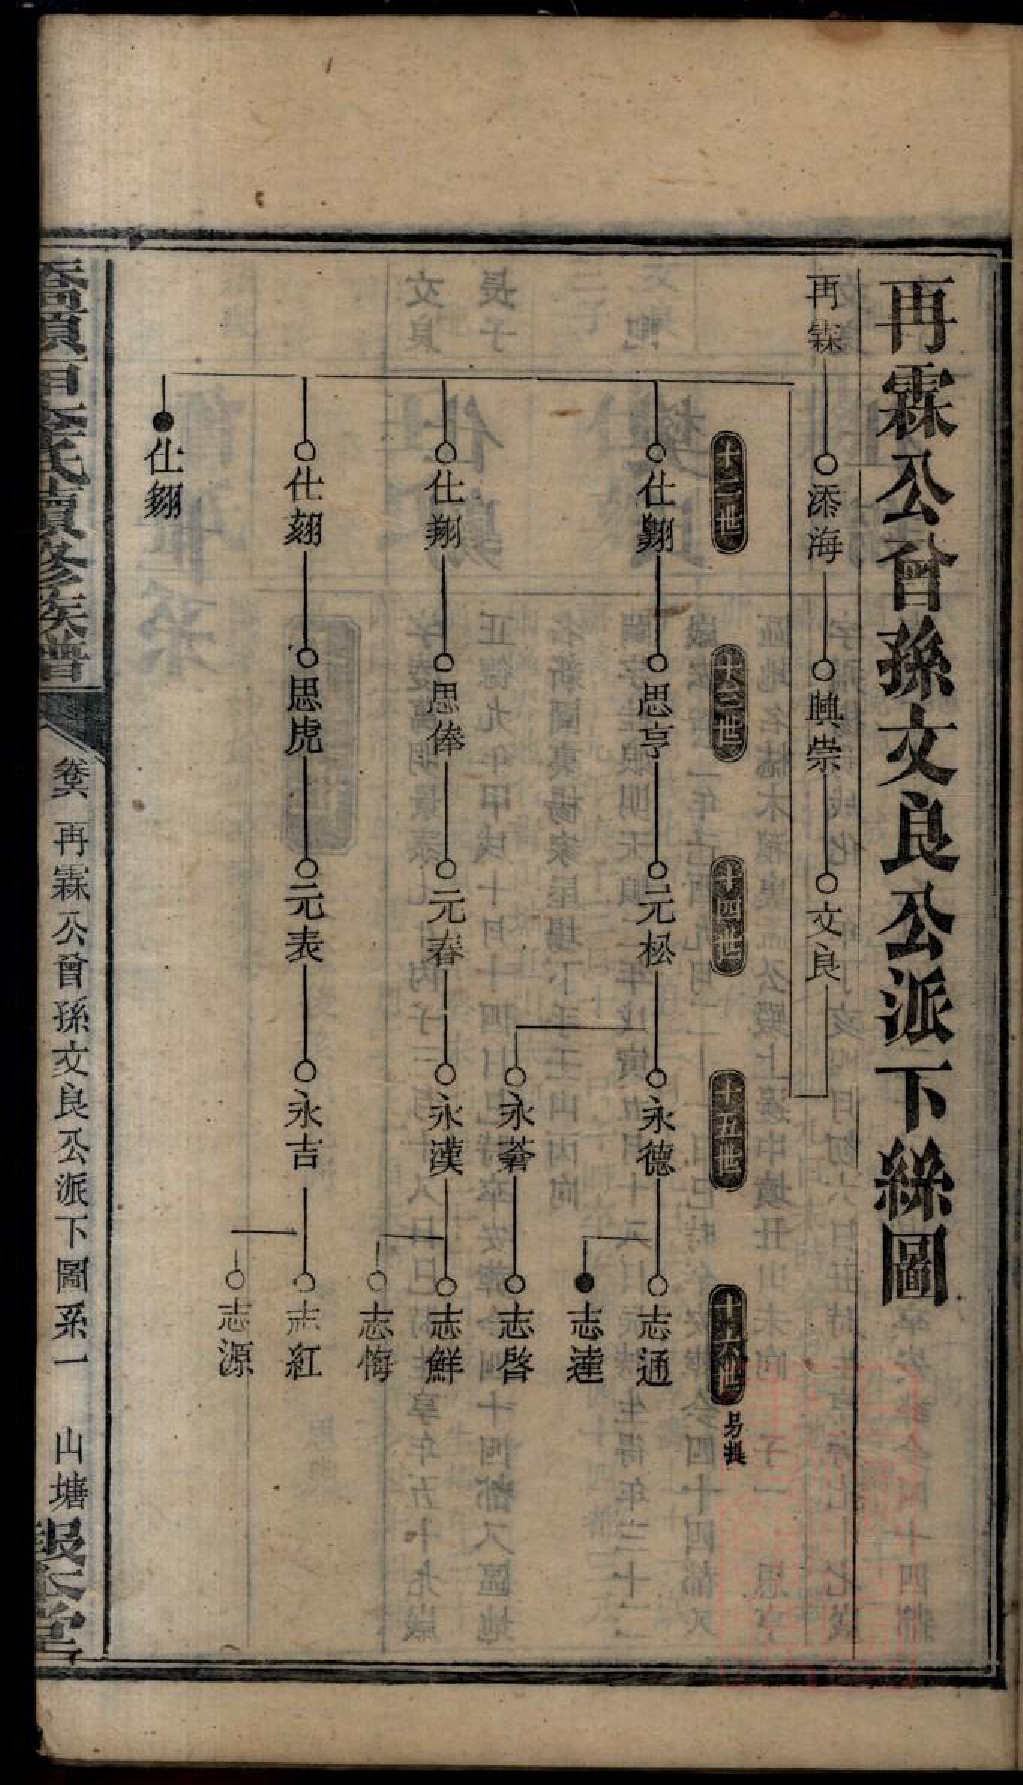 再霖公曾孫文良公派下絲圖
再霖
添海
興崇
文良
十二世
十三世
十四世
十五世
十六世
易提
仕鄋
思亨
元松
永德
志通
志達
永蒼
志啓
仕翔
思俸
元春
永漢
志鮮
志悔
仕翝
思虎
元表
永吉
志紅
志源
仕翗
李氏續修族譜
卷六
再霖公曾孫文良公派下圖系一
山塘
報本堂